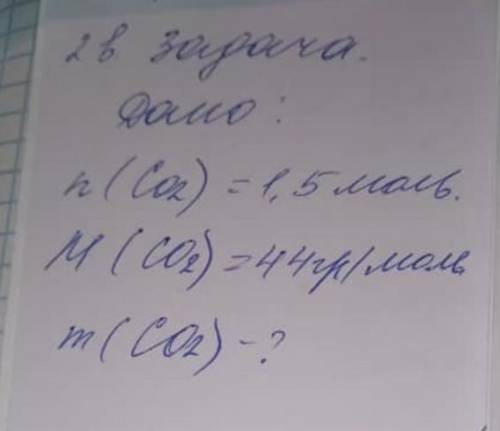 2 в. Задача.
Дано:
n(CO2) = 1,5 моль.
M(CO2) = 44гр/моль
m(CO2) - ?